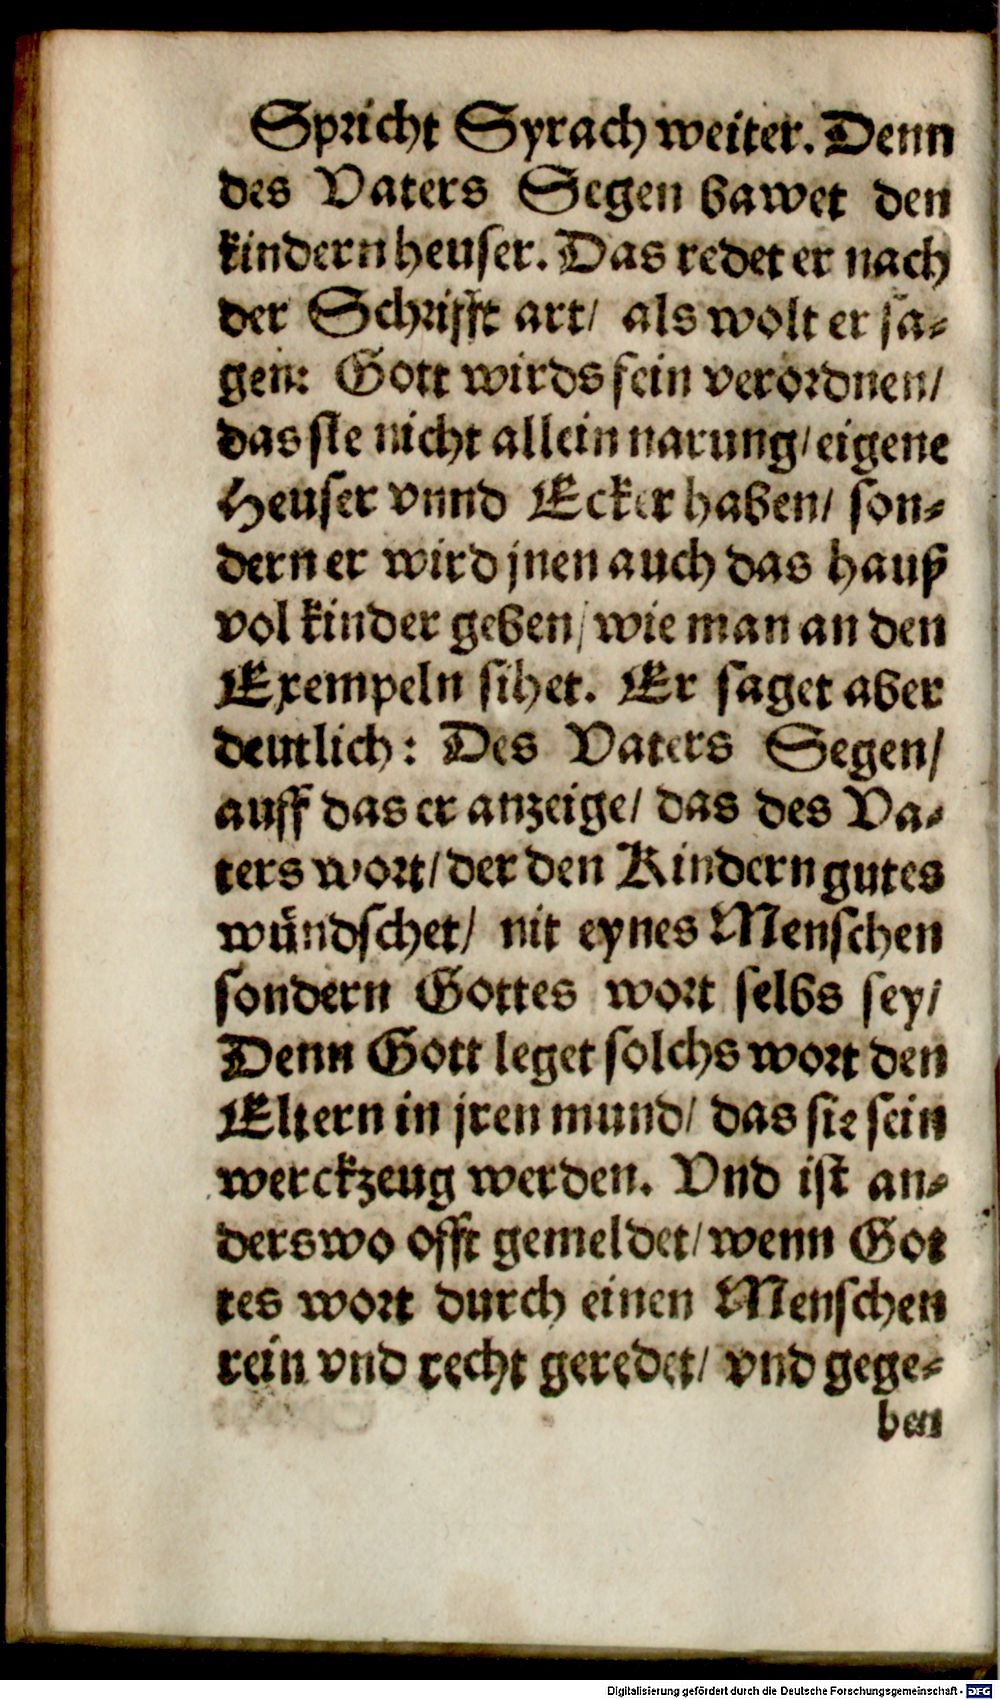 Spricht Syrach weiter. Denn
des Vaters Segen bawet den
kindern heuser. Das redet er nach
der Schrifft art/ als wolt er sa-
gen: Gott wirds fein verordnen/
das sie nicht allein narung/ eigene
Heuser vnnd Ecker haben/ son-
dern er wird jnen auch das hauß
vol kinder geben/ wie man an den
Exempeln sihet. Er saget aber
deutlich: Des Vaters Segen/
auff das er anzeige/ das des Va-
ters wort/ der den Kindern gutes
wündschet/ nit eynes Menschen
sondern Gottes wort selbs sey/
Denn Gott leget solchs wort den
Eltern in jren mund/ das sie sein
werckzeug werden. Vnd ist an-
derswo offt gemeldet/ wenn Got
tes wort durch einen Menschen
rein vnd recht geredet/ vnd gege-
ben
Digitalisierung gefördert durch die Deutsche Forschungsgemeinschaft - DFG